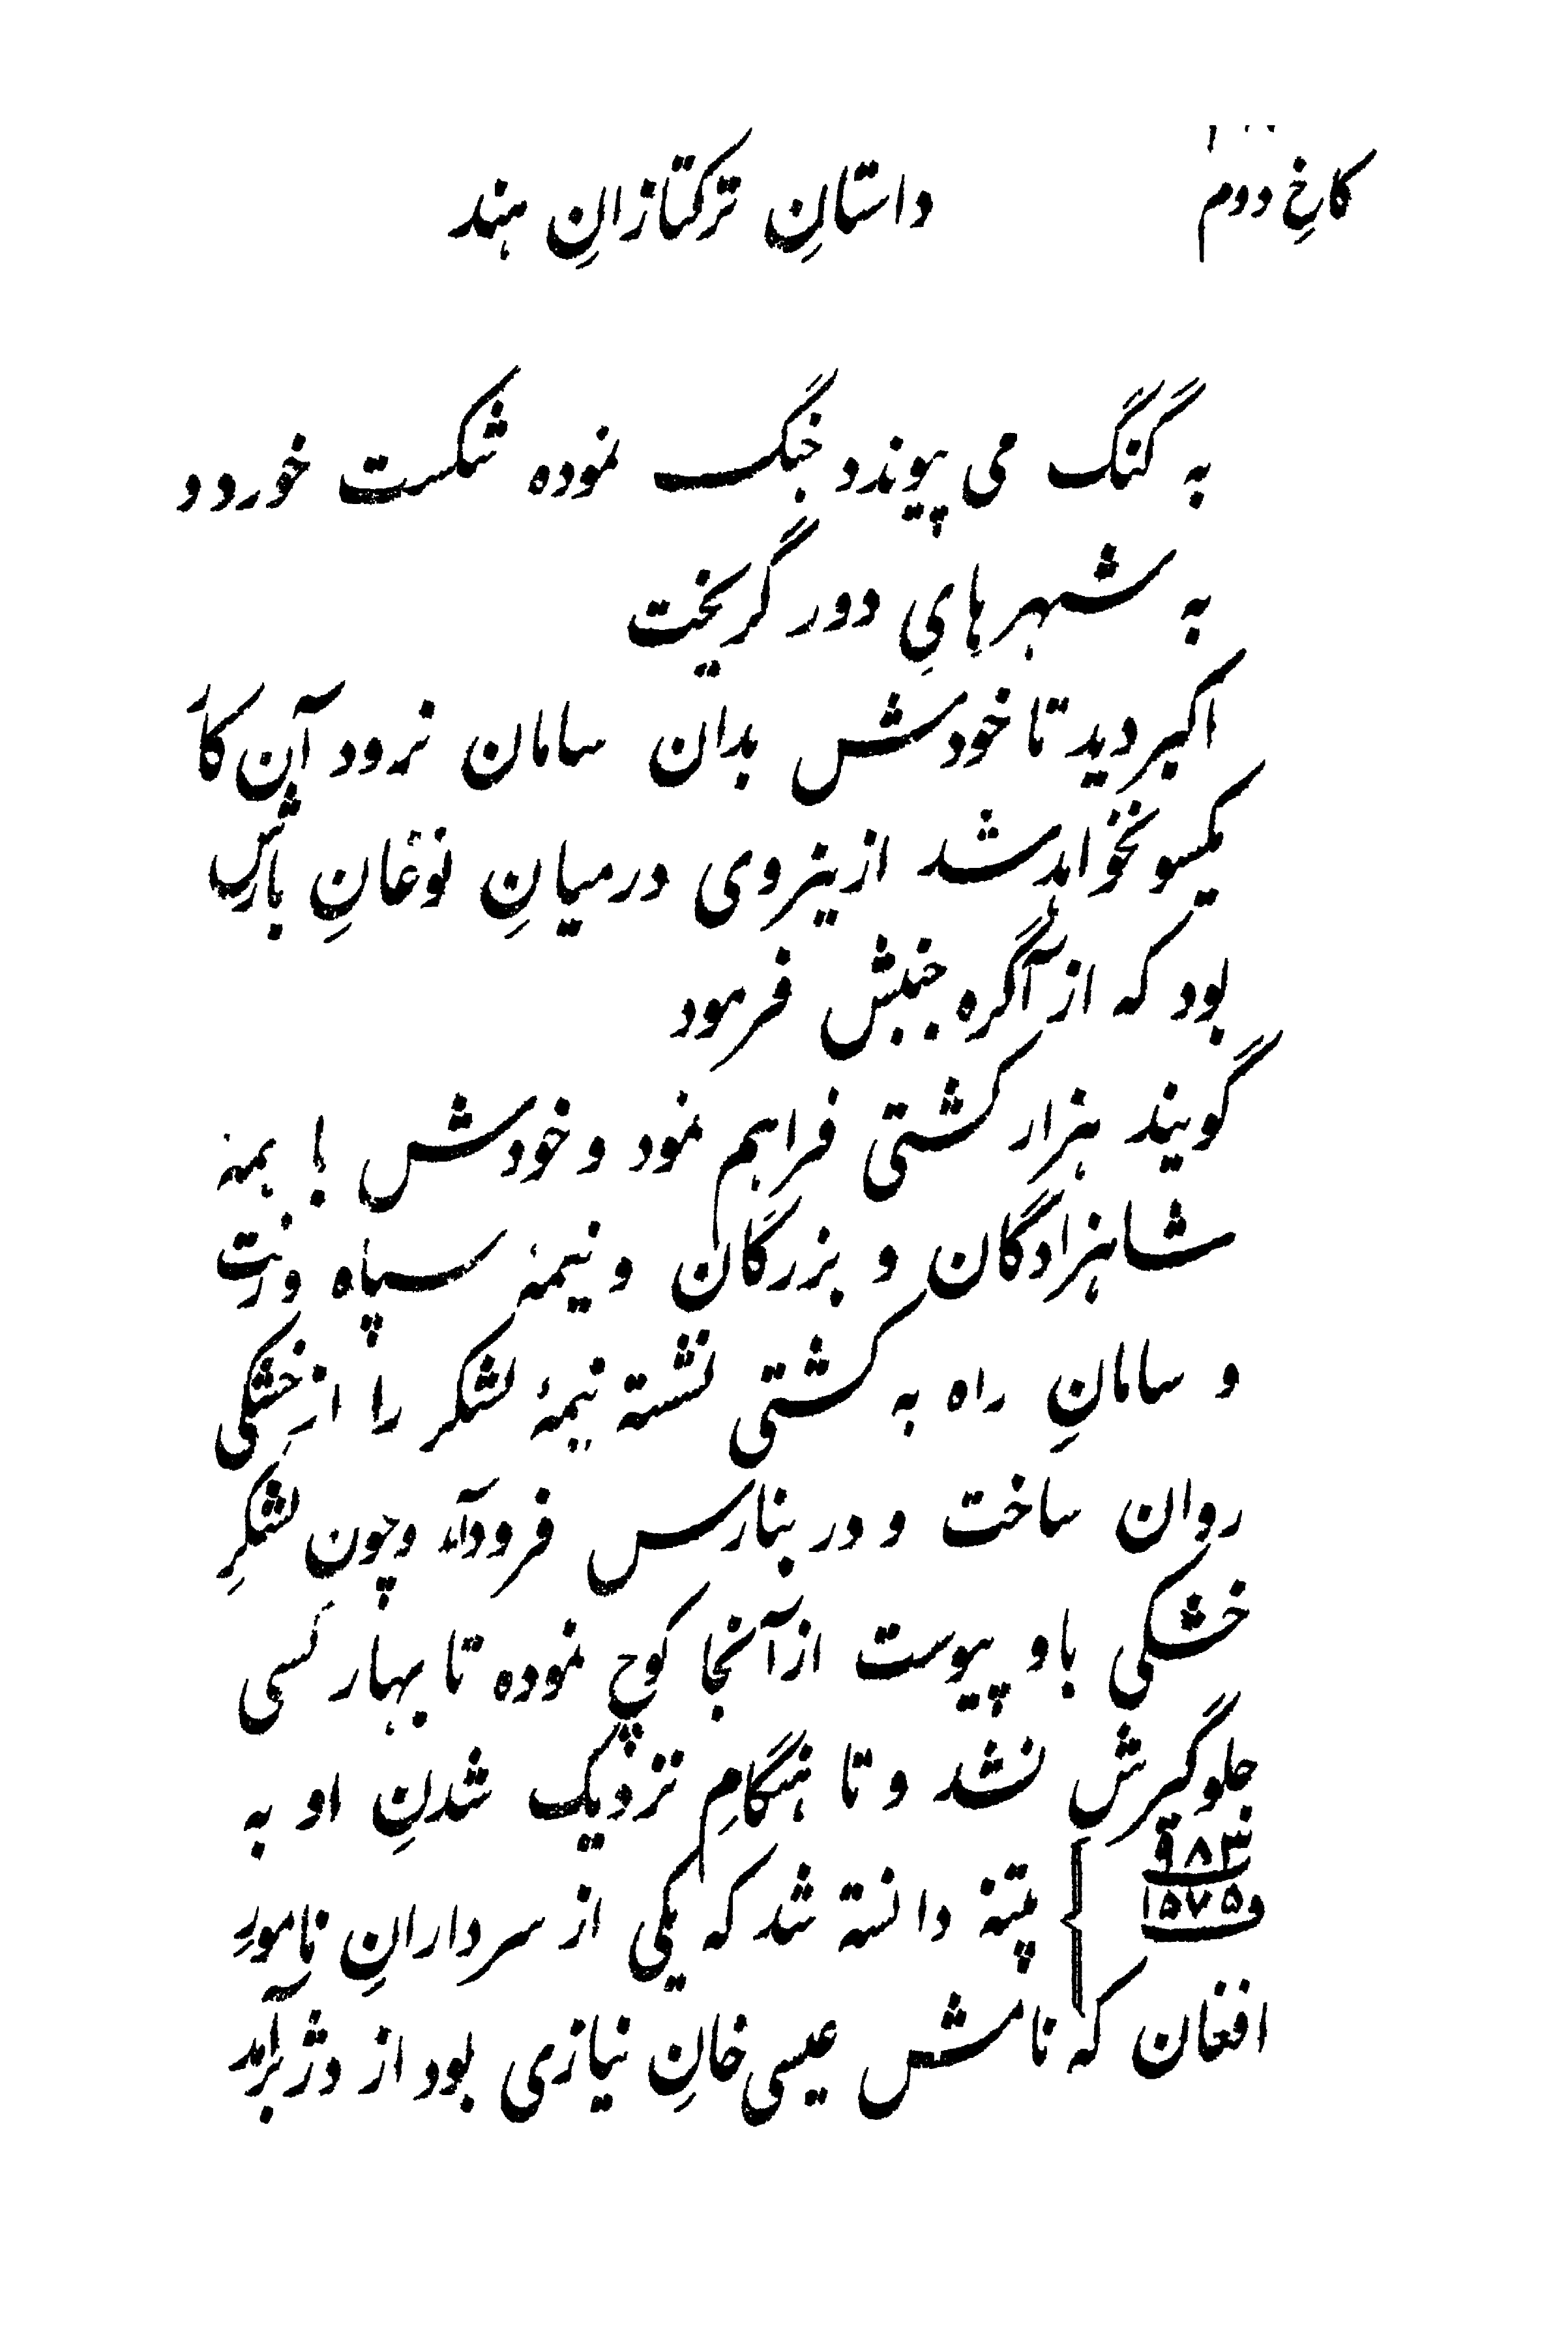 کاخ دوم داستانِ ترکتازانِ هند
به گنگ می پیوندد جنگ نموده شکست خورد و
به شهرهایِ دور گریخت
اکبر دید تا خودش بدان سامان نرود آن کار
یکسو نخواهد شد ازینروی درمیانِ نوغانِ بارش
بود که از آگره جنبش فرمود
گویند هزار کشتی فراهم نمود و خودش با همهٔ
شاهزادگان و بزرگان و نیمهٔ سپاه و رخت
و سامانِ راه به کشتی نشسته نیمهٔ لشکر را از خشکی
روان ساخت و در بنارس فرودآمد و چون لشکرِ
خشکی باو پیوست از آنجا کوچ نموده تا بهار کسی
جلوگیرش نشد و تا هنگامِ نزدیک شدنِ او به
۹۸۳
۱۵۷۵
پتنه دانسته شد که یکی از سردارانِ نامورِ
افغان که نامش عیسی خانِ نیازی بود از دژ برآمد